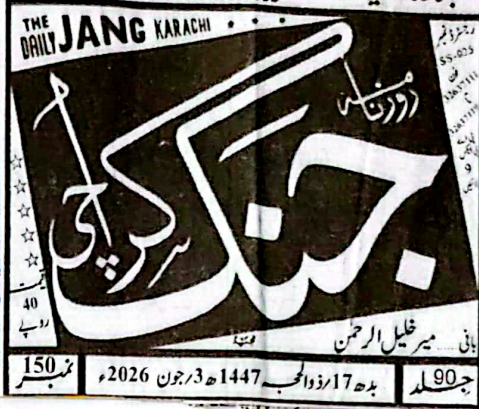 THE DAILY JANG KARACHI
روزنامہ
جنگ
کراچی
رجسٹرڈ نمبر
SS-025
قیمت
40
روپے
بانی ..... میر خلیل الرحمٰن
جلد 90
بدھ 17/ذوالحجہ 1447ھ 3/جون 2026ء
نمبر 150